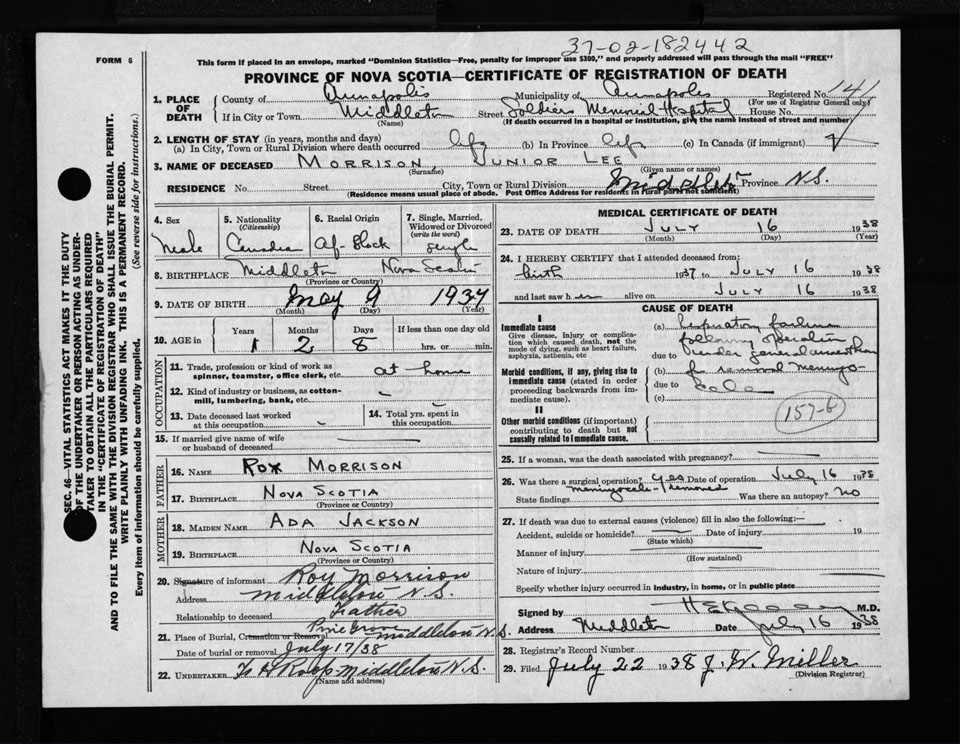 37-02-182442
FORM 6
This form if placed in an envelope, marked "Dominion Statistics—Free, penalty for improper use $300," and properly addressed will pass through the mail "FREE"
PROVINCE OF NOVA SCOTIA—CERTIFICATE OF REGISTRATION OF DEATH
SEC. 46—VITAL STATISTICS ACT MAKES IT THE DUTY
OF THE UNDERTAKER OR PERSON ACTING AS UNDER-
TAKER TO OBTAIN ALL THE PARTICULARS REQUIRED
IN THE "CERTIFICATE OF REGISTRATION OF DEATH"
AND TO FILE THE SAME WITH THE DIVISION REGISTRAR WHO SHALL ISSUE THE BURIAL PERMIT.
WRITE PLAINLY WITH UNFADING INK. THIS IS A PERMANENT RECORD.
Every item of information should be carefully supplied. (See reverse side for instructions.)
1. PLACE OF DEATH
County of Annapolis Municipality of Annapolis Registered No. 141
(For use of Registrar General only)
If in City or Town Middleton Street Soldiers Memorial Hospital House No.
(Name) (If death occurred in a hospital or institution, give the name instead of street and number)
2. LENGTH OF STAY (in years, months and days)
(a) In City, Town or Rural Division where death occurred life (b) In Province life (c) In Canada (if immigrant)
3. NAME OF DECEASED MORRISON, JUNIOR LEE
(Surname) (Given name or names)
RESIDENCE No. Street City, Town or Rural Division Middleton Province N.S.
(Residence means usual place of abode. Post Office Address for residents in rural parts not sufficient)
4. Sex
Male
5. Nationality
(Citizenship)
Canadian
6. Racial Origin
Af-Black
7. Single, Married,
Widowed or Divorced
(write the word)
Single
8. BIRTHPLACE Middleton Nova Scotia
(Province or Country)
9. DATE OF BIRTH May 9 1937
(Month) (Day) (Year)
10. AGE in
Years Months Days If less than one day old
1 2 8 hrs. or min.
OCCUPATION
11. Trade, profession or kind of work as
spinner, teamster, office clerk, etc. at home
12. Kind of industry or business, as cotton-
mill, lumbering, bank, etc.
13. Date deceased last worked
at this occupation
14. Total yrs. spent in
this occupation
15. If married give name of wife
or husband of deceased
FATHER
16. NAME ROY MORRISON
17. BIRTHPLACE NOVA SCOTIA
(Province or Country)
MOTHER
18. MAIDEN NAME ADA JACKSON
19. BIRTHPLACE NOVA SCOTIA
(Province or Country)
20. Signature of informant Roy Morrison
Address Middleton N.S.
Relationship to deceased Father
21. Place of Burial, Cremation or Removal Pine Grove Middleton N.S.
Date of burial or removal July 17/38
22. UNDERTAKER Roop Middleton N.S.
(Name and address)
MEDICAL CERTIFICATE OF DEATH
23. DATE OF DEATH JULY 16 1938
(Month) (Day) (Year)
24. I HEREBY CERTIFY that I attended deceased from:
birth 1937 to JULY 16 1938
and last saw h im alive on JULY 16 1938
CAUSE OF DEATH
I
Immediate cause
Give disease, injury or complica-
tion which caused death, not the
mode of dying, such as heart failure,
asphyxia, asthenia, etc
Morbid conditions, if any, giving rise to
immediate cause (stated in order
proceeding backwards from im-
mediate cause).
II
Other morbid conditions (if important)
contributing to death but not
causally related to immediate cause.
(a) Respiratory failure
following operation
due to under general
(b) for removal meningo-
due to cele
(c)
157-b
25. If a woman, was the death associated with pregnancy?
26. Was there a surgical operation? yes Date of operation July 16 1938
State findings meningocele removed Was there an autopsy? no
27. If death was due to external causes (violence) fill in also the following:—
Accident, suicide or homicide? Date of injury 19
(State which)
Manner of injury
(How sustained)
Nature of injury
Specify whether injury occurred in industry, in home, or in public place
Signed by M.D.
Address Middleton Date July 16 1938
28. Registrar's Record Number
29. Filed July 22 1938 J. W. Miller
(Division Registrar)